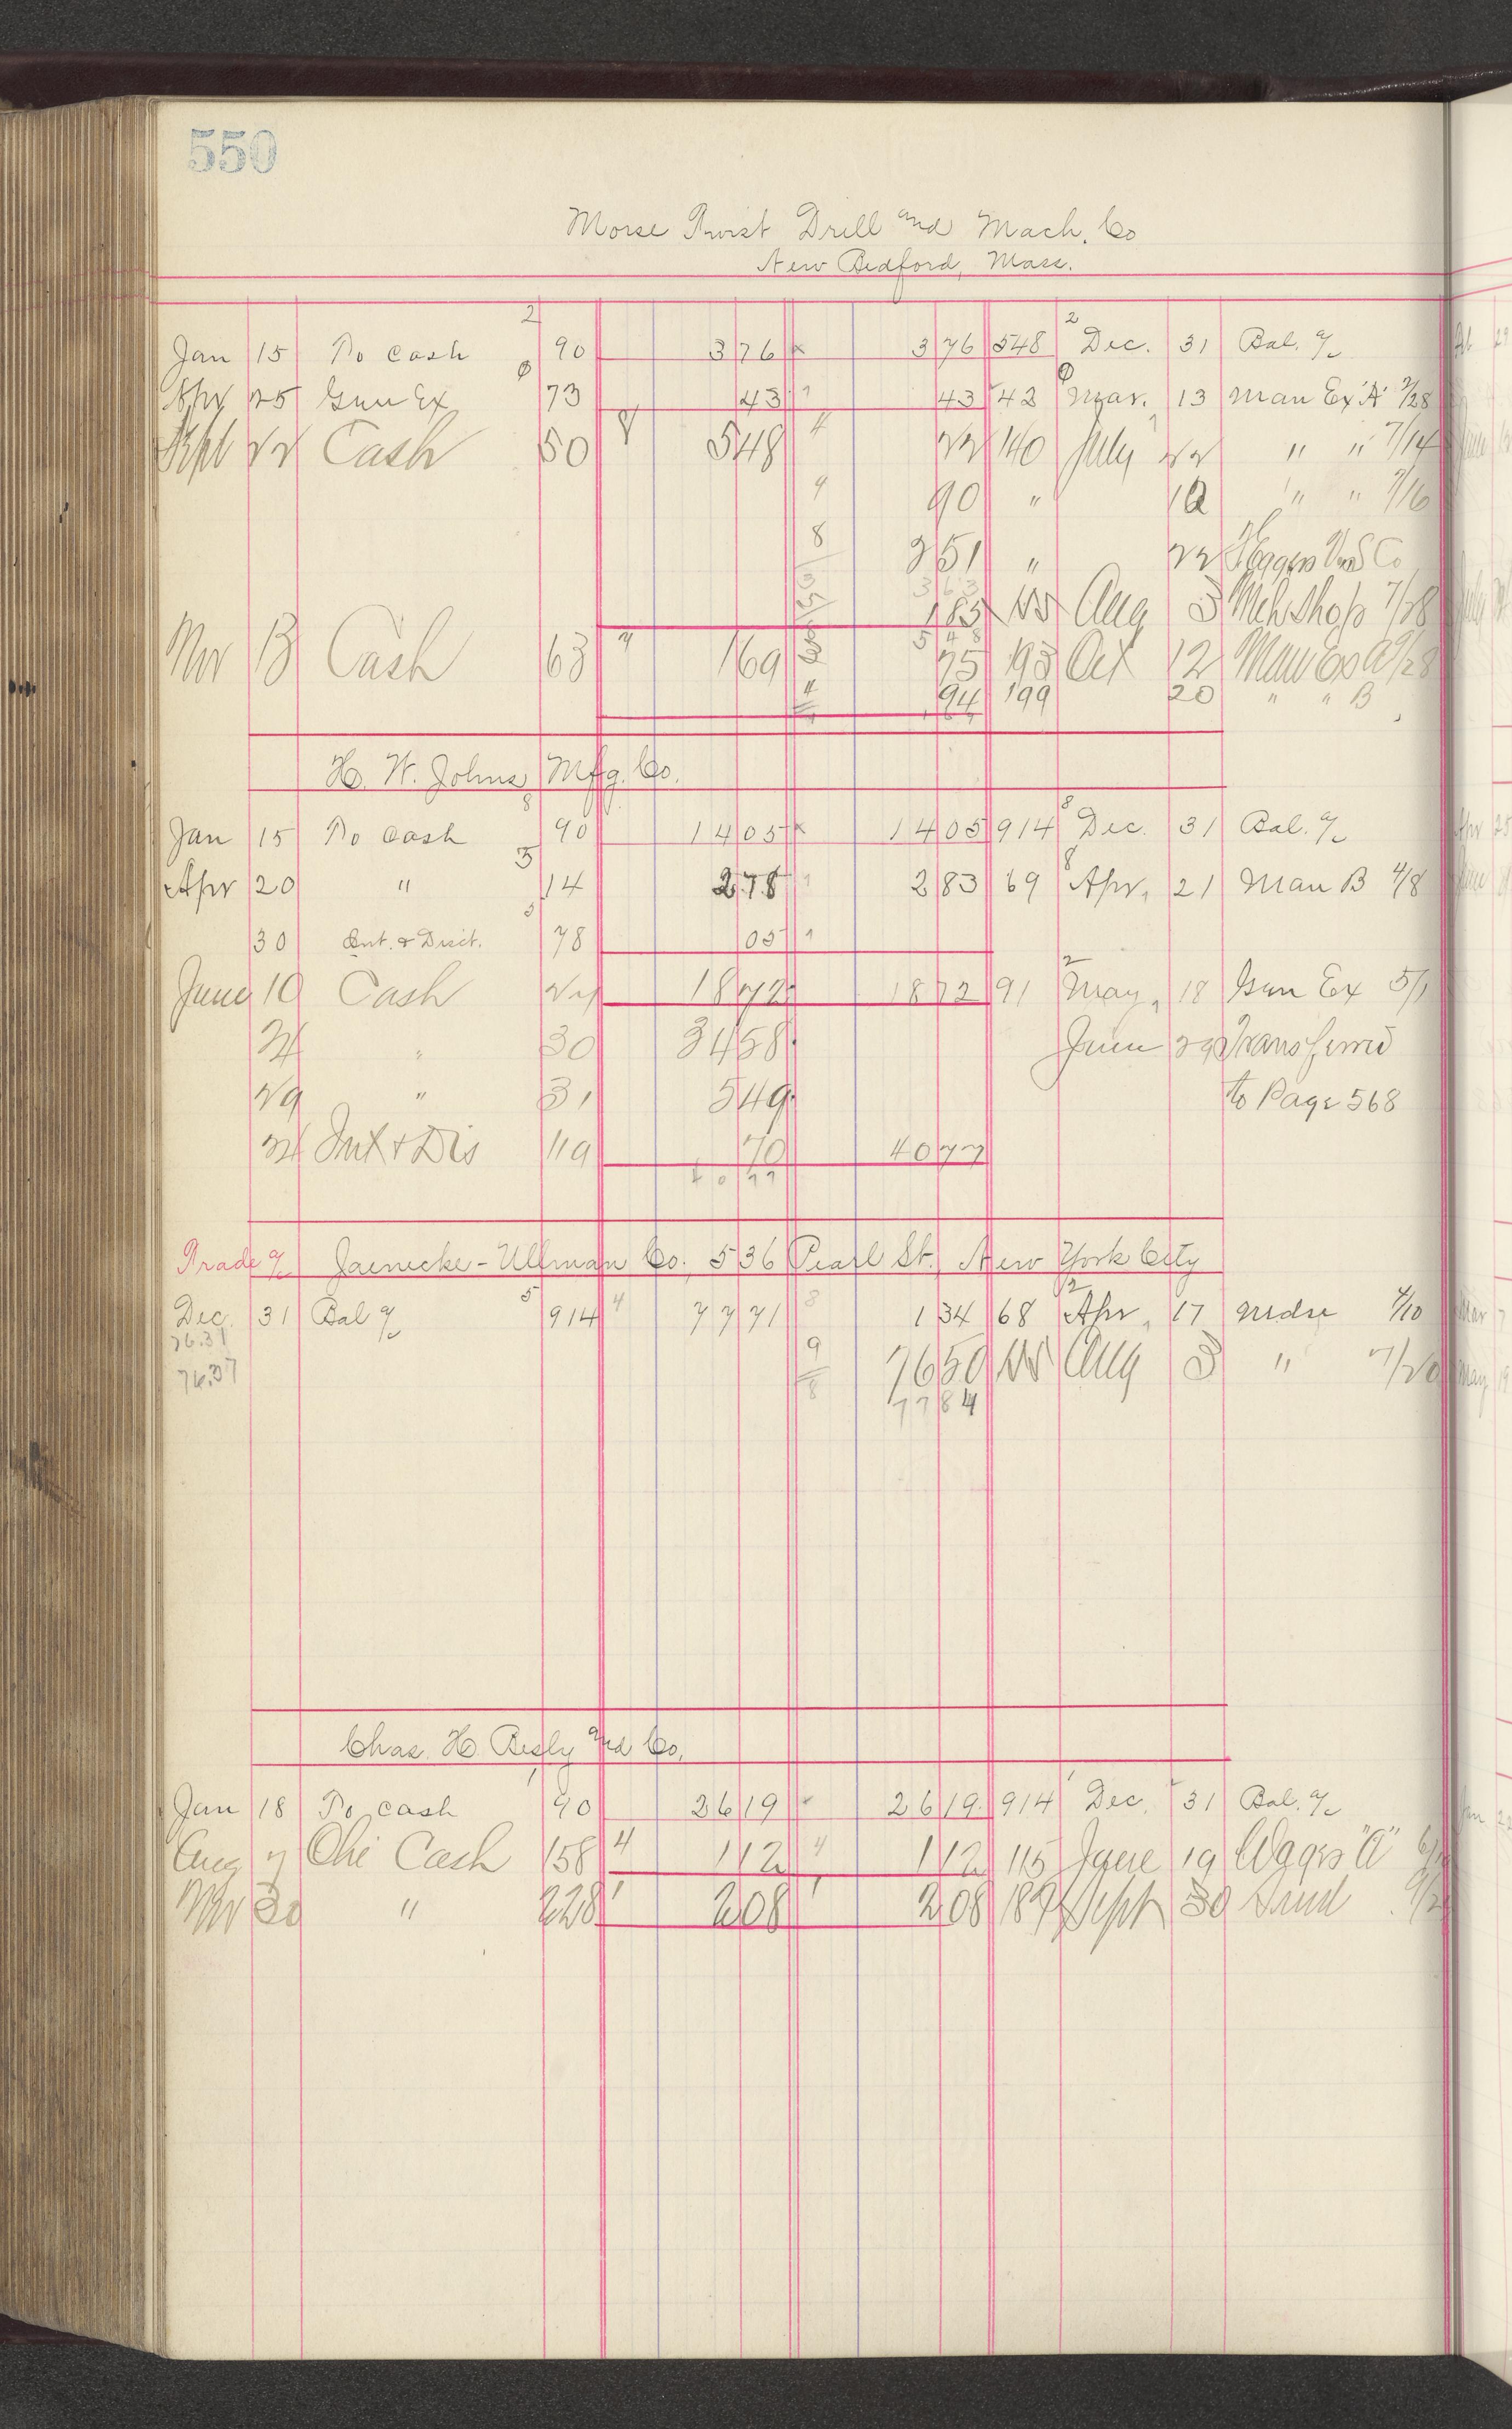 550
Morse Twist Drill and Mach. Co
New Bedford, Mass.
2 2
Jan 15 To Cash 90 3 76 x 3 76 548 Dec. 31 Bal. a/c
Apr 25 Gen Ex 73 43 1 43 42 Mar. 13 Man Ex "A" 2/28
Sept 22 Cash 50 5 48 4 22 140 July 22 " " 7/14
4 90 " 12 " " 7/16
8 2 51 " 22 Co
3 63
1 85 Aug 3 Mch Shop 7/28
5 48
Nov 13 Cash 63 1 69 75 193 Oct 12 Man Ex A 9/28
94 199 20 " " B
H. W. Johns Mfg. Co.
8 8
Jan 15 To Cash 90 14 05 x 14 05 914 Dec. 31 Bal. a/c
5 8
Apr 20 " 14 2 78 1 2 83 69 Apr. 21 Man B 4/8
3
30 Int. & Disct. 78 05 1
2
June 10 Cash 18 72 18 72 91 May, 18 Gen Ex 5/1
24 " 30 34 58 June 29 Transferred
29 " 31 5 49 to Page 568
24 Int & Dis 119 70 40 77
40 77
Trade a/c Jaenecke-Ullman Co. 536 Pearl St. New York City
5 2
Dec. 31 Bal a/c 914 4 77 71 8 1 34 68 Apr. 17 Mdse 4/10
76.31
9 76 50 Aug 3 " 7/20
76.37
8 77 84
Chas. H. Besly and Co.
1 1
Jan 18 To Cash 90 26 19 26 19 914 Dec. 31 Bal. a/c
Aug 7 Chi Cash 158 4 1 12 4 1 12 115 June 19 Wages "A"
Nov 30 " 228 1 2 08 1 2 08 187 Sept 30